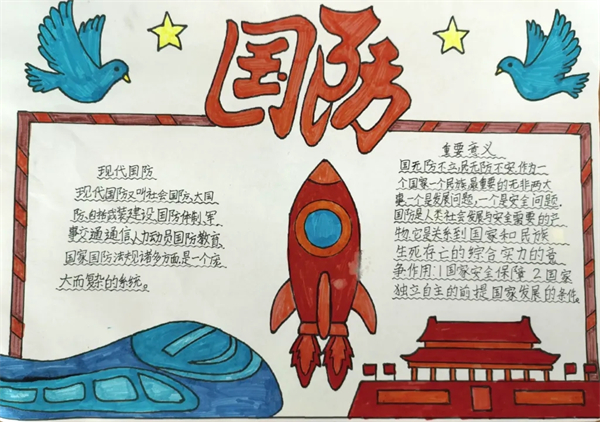 国防
现代国防
现代国防又叫社会国防,大国
防,包括武装建设,国防体制,军
事交通通信,人力动员国防教育,
国家国防法规诸多方面是一个庞
大而复杂的系统。
重要意义
国无防不立,民无防不安,作为一
个国家一个民族,最重要的无非两大
事一是发展问题,一个是安全问题,
国防是人类社会发展与安全需要的产
物,它是关系到国家和民族
生死存亡的综合实力的竞
争作用:1国家安全保障2国家
独立自主的前提国家发展的条件。